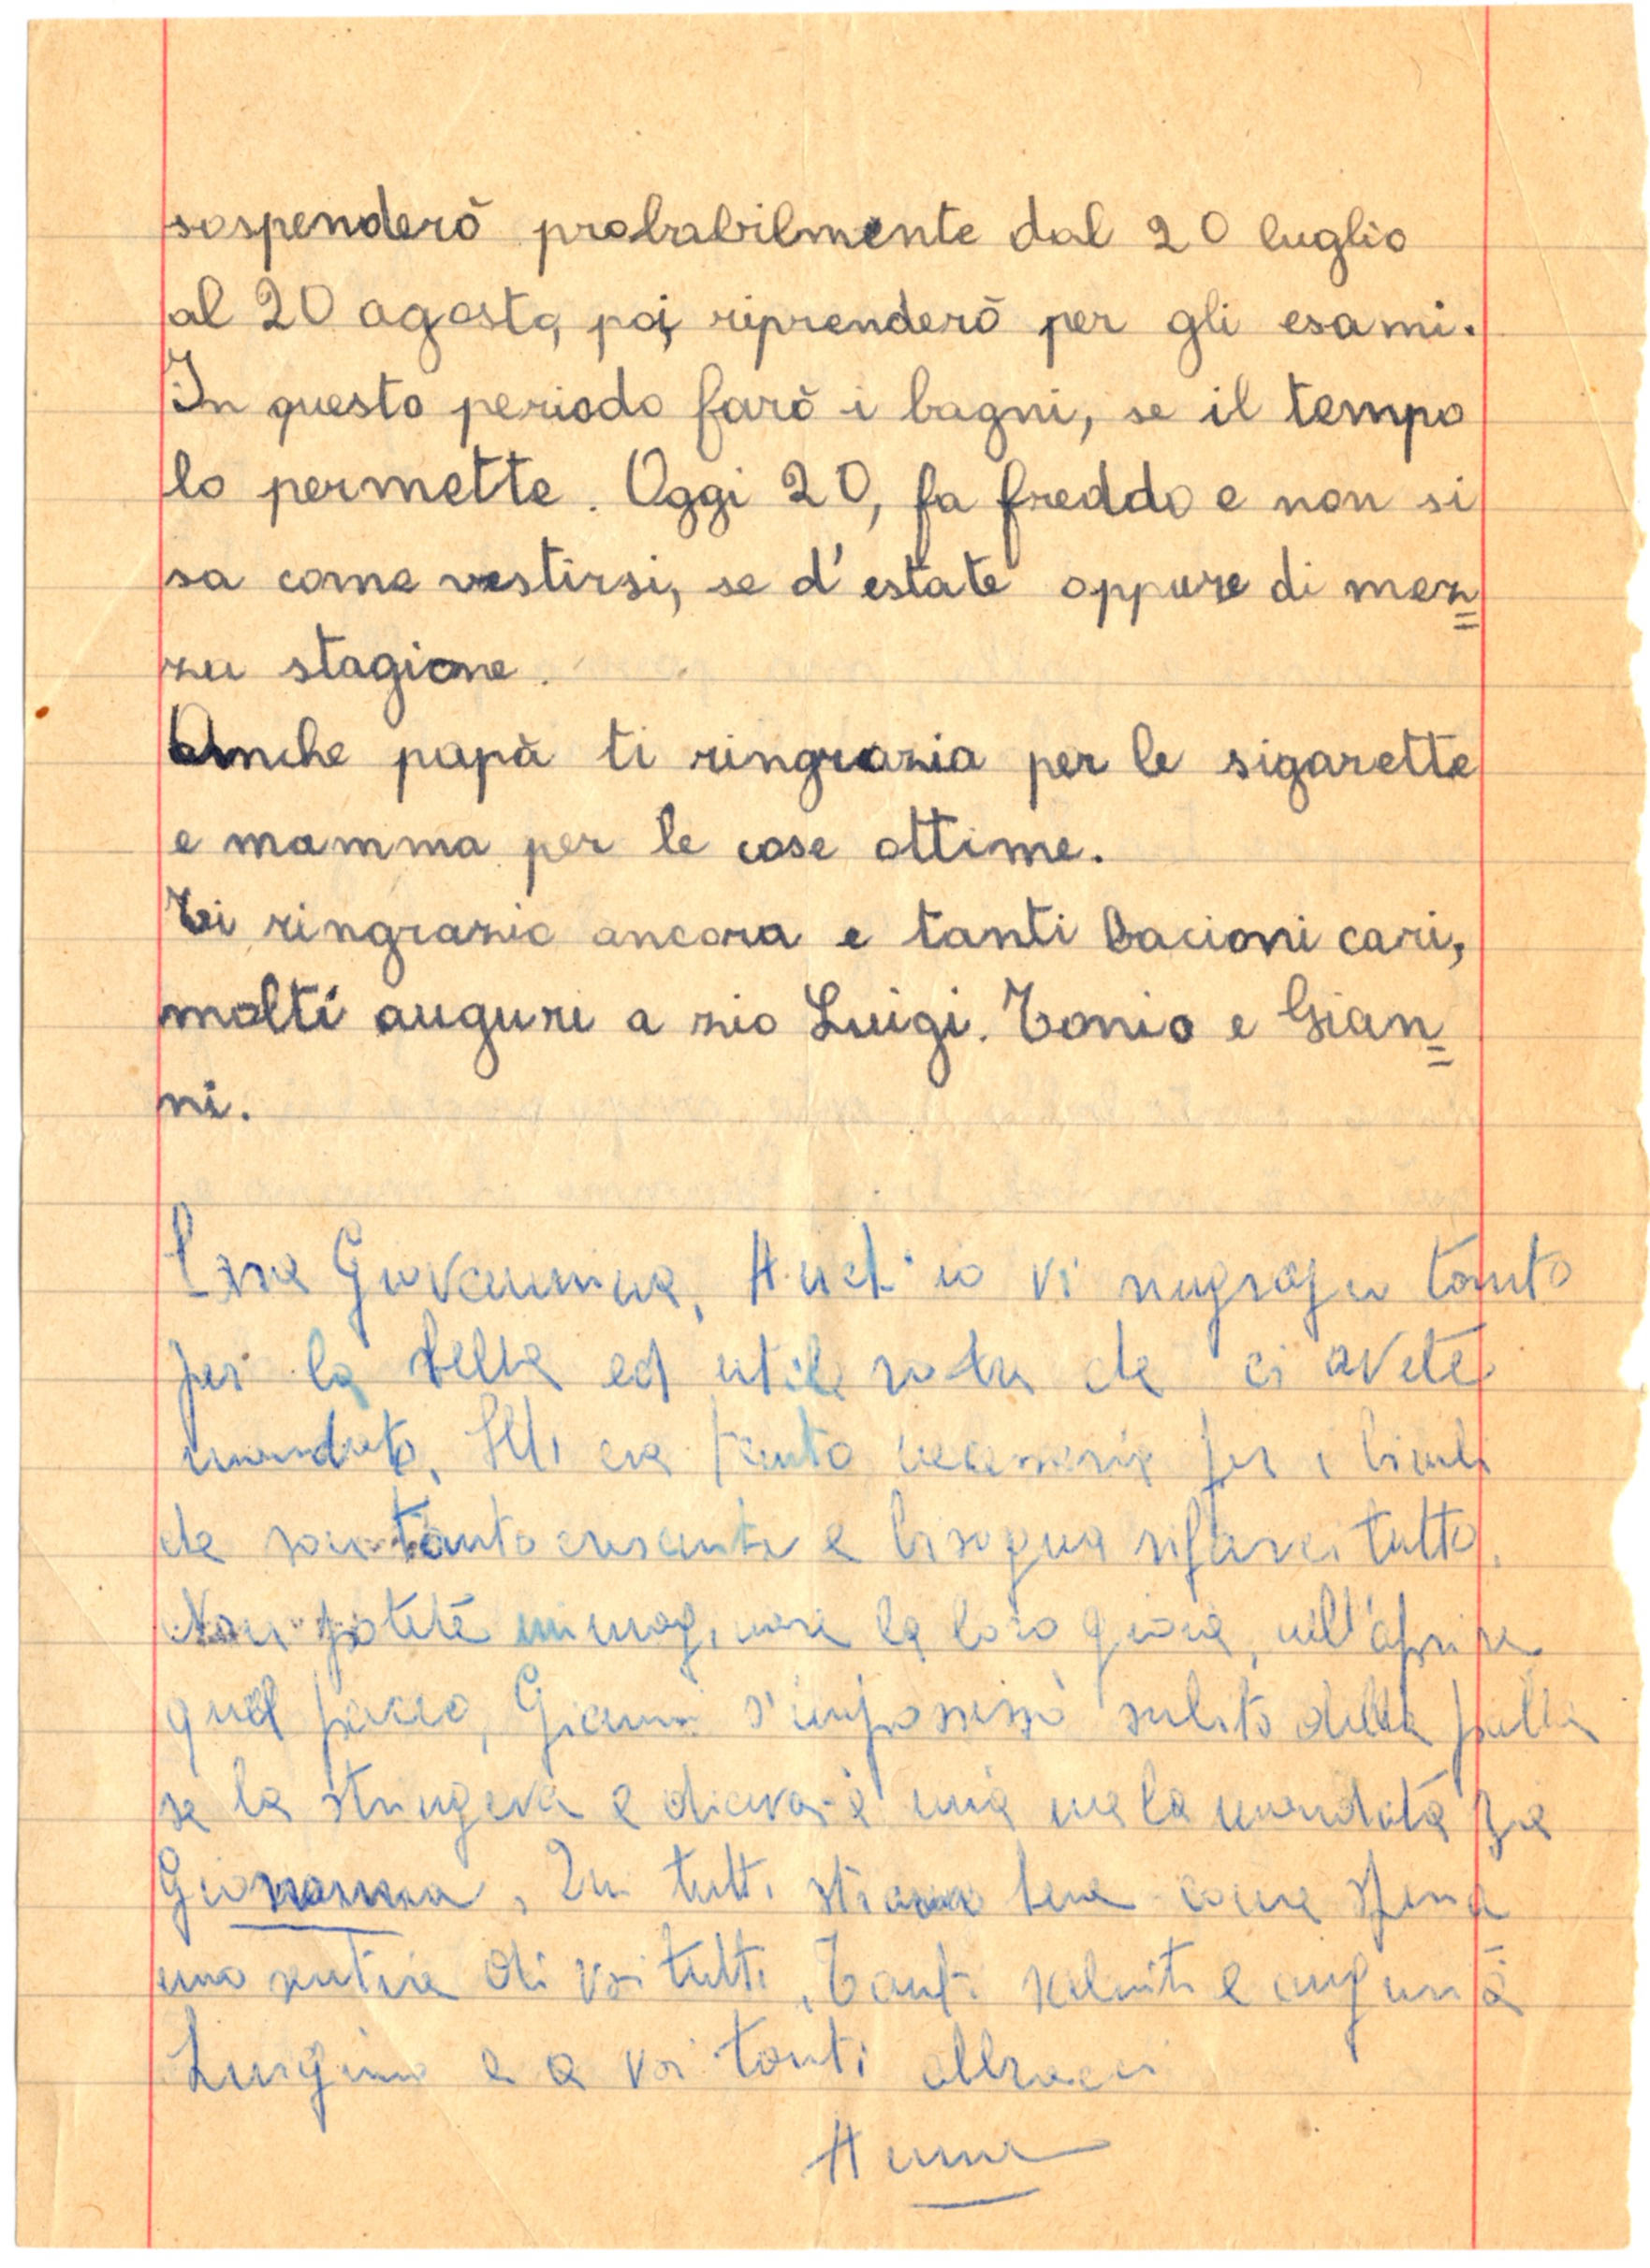 sospenderò probabilmente dal 20 luglio
al 20 agosto, poi, riprenderò per gli esami.
In questo periodo farò i bagni, se il tempo
lo permette. Oggi 20, fa freddo e non si
sa come vestirsi, se d'estate oppure di mez=
za stagione.
Anche papà ti ringrazia per le sigarette
e mamma per le cose ottime.
Ti ringrazio ancora e tanti bacioni cari,
molti auguri a zio Luigi. Tonio e Gian=
ni.
Cara Giovannina, Anch'io vi ringrazio tanto
per la bella ed utile roba che ci avete
mandato, Mi era tanto necessaria per i bimbi
che sono tanto cresciuti e bisogna rifarci tutto.
Non potete immaginare la loro gioia, nell'aprire
quel pacco, Gianni s'impossessò subito della palla
se la stringeva e diceva è mia me la mandata zia
Giovanna, tutti stiamo bene come spero
sentire di voi tutti, Tanti saluti e auguri a
Luigino e a voi tanti abbracci
Anna